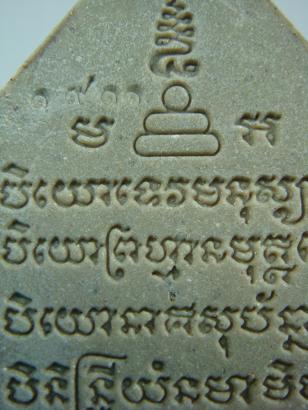 ๑๙๑๑
ម អ
បិយោទេវមនុស្ស
បិយោព្រហ្មានមុត្ត
បិយោនាគសុបណ្ណ
បិនិន្ទ្រិយំនមាមិ